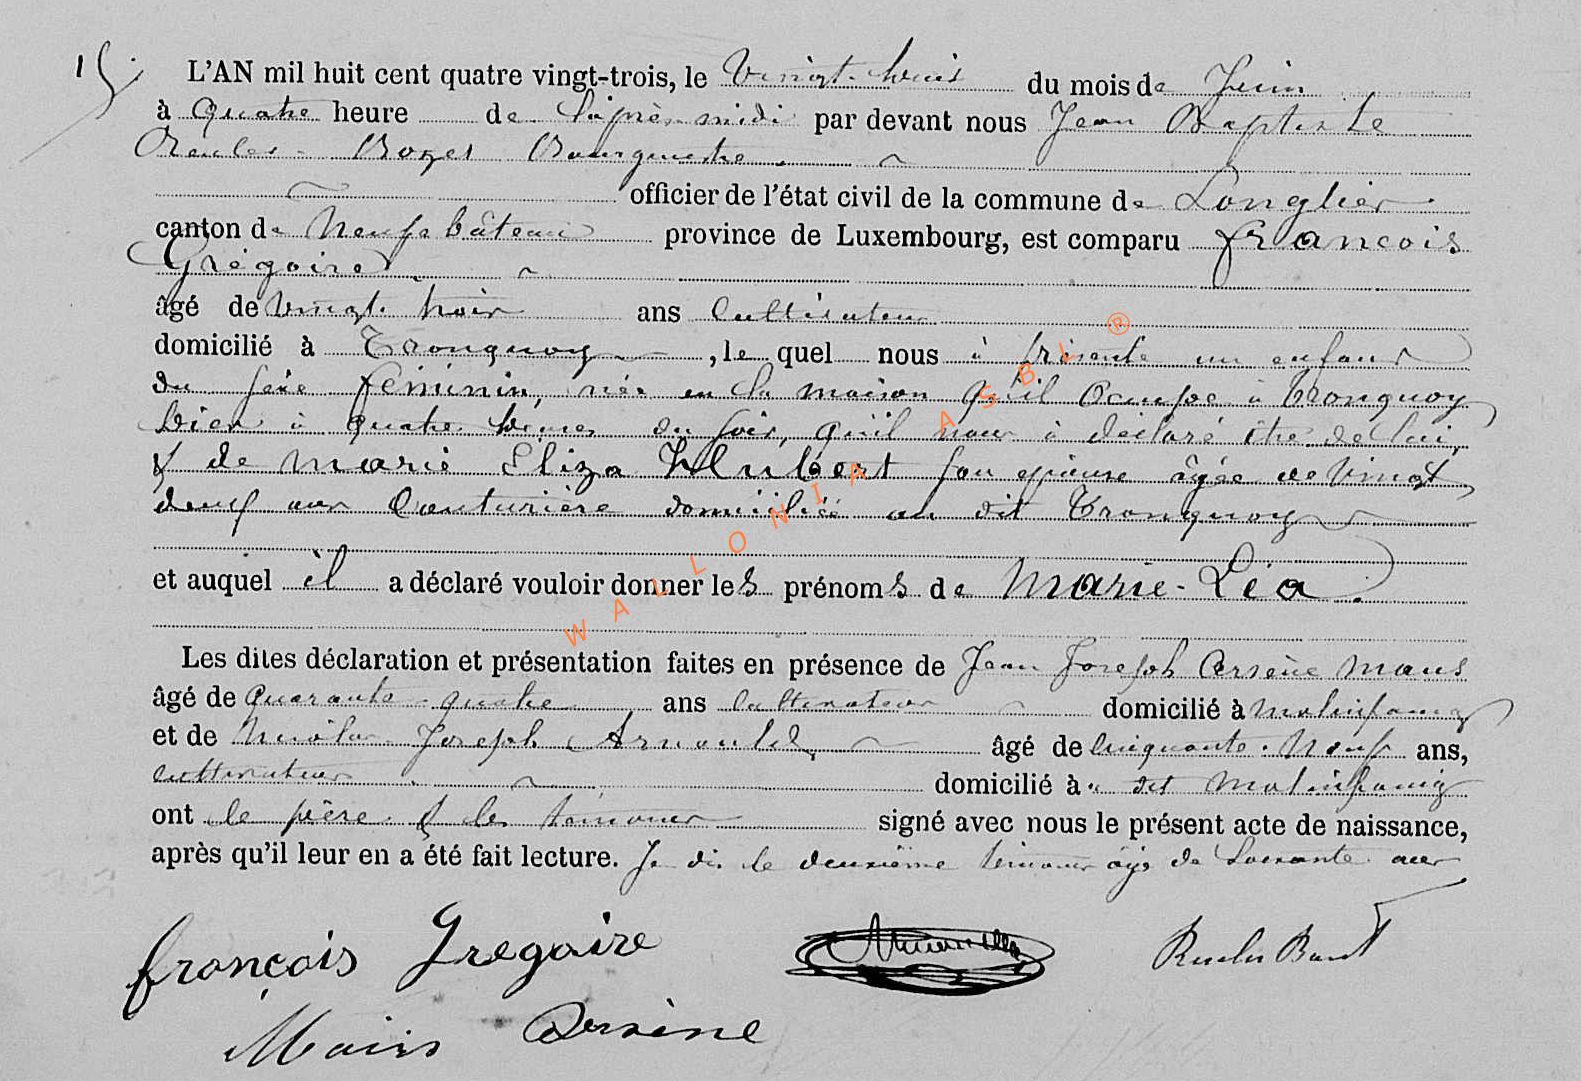 15.
L'AN mil huit cent quatre vingt-trois, le Vingt-trois du mois de Juin
à quatre heure de l'après-midi par devant nous Jean Baptiste
Reuler Bozet Bourgmestre
officier de l'état civil de la commune de Longlier
canton de Neufchâteau province de Luxembourg, est comparu françois
Grégoire
âgé de vingt-trois ans Cultivateur
domicilié à Tronquoy, le quel nous à présenté un enfant
du sexe féminin, née en la maison qu'il occupe à Tronquoy
hier à quatre heures du soir, qu'il nous à déclaré être de lui,
& de Marie Eliza Hubert son épouse âgée de Vingt
deux ans Couturière domiciliée au dit Tronquoy
et auquel il a déclaré vouloir donner les prénoms de Marie-Léa.
Les dites déclaration et présentation faites en présence de Jean Joseph Arsène Maus
âgé de quarante-quatre ans cultivateur domicilié à Molinfaing
et de Nicolas Joseph Arnould, âgé de Cinquante-Neuf ans,
cultivateur domicilié à dit Molinfaing
ont le père & les témoins signé avec nous le présent acte de naissance,
après qu'il leur en a été fait lecture. Je dis le deuxième témoin âgé de soixante ans
françois Gregoire
Arsène
WALLONIA ASBL ®